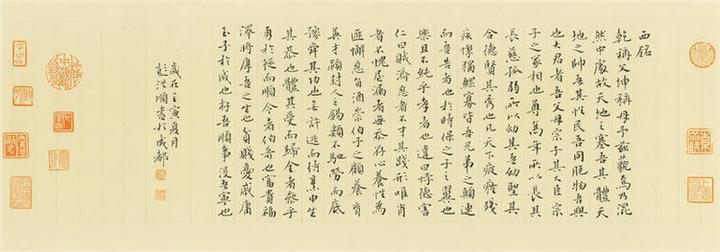 西銘
乾稱父坤稱母予茲藐焉乃混
然中處故天地之塞吾其體天
地之帥吾其性民吾同胞物吾與
也大君者吾父母宗子其大臣宗
子之家相也尊高年所以長其
長慈孤弱所以幼其吾幼聖其
合德賢其秀也凡天下疲癃殘
疾惸獨鰥寡皆吾兄弟之顛連
而告者也於時保之子之翼也
樂且不純乎孝者也違曰悖德害
仁曰賊濟惡者不才其踐形唯肖
者不愧屋漏者無忝存心養性為
匪懈惡旨酒崇伯子之顧養育
英才穎封人之錫類不馳勞而底
豫舜其功也無逃而待烹申生
其恭也體其受而歸全者參乎
勇於從而順令者伯奇也富貴福
澤將厚吾之生也貧賤憂戚庸
玉於成也存吾順事沒吾寧也
歲在壬寅夏月
彭洪順書於成都